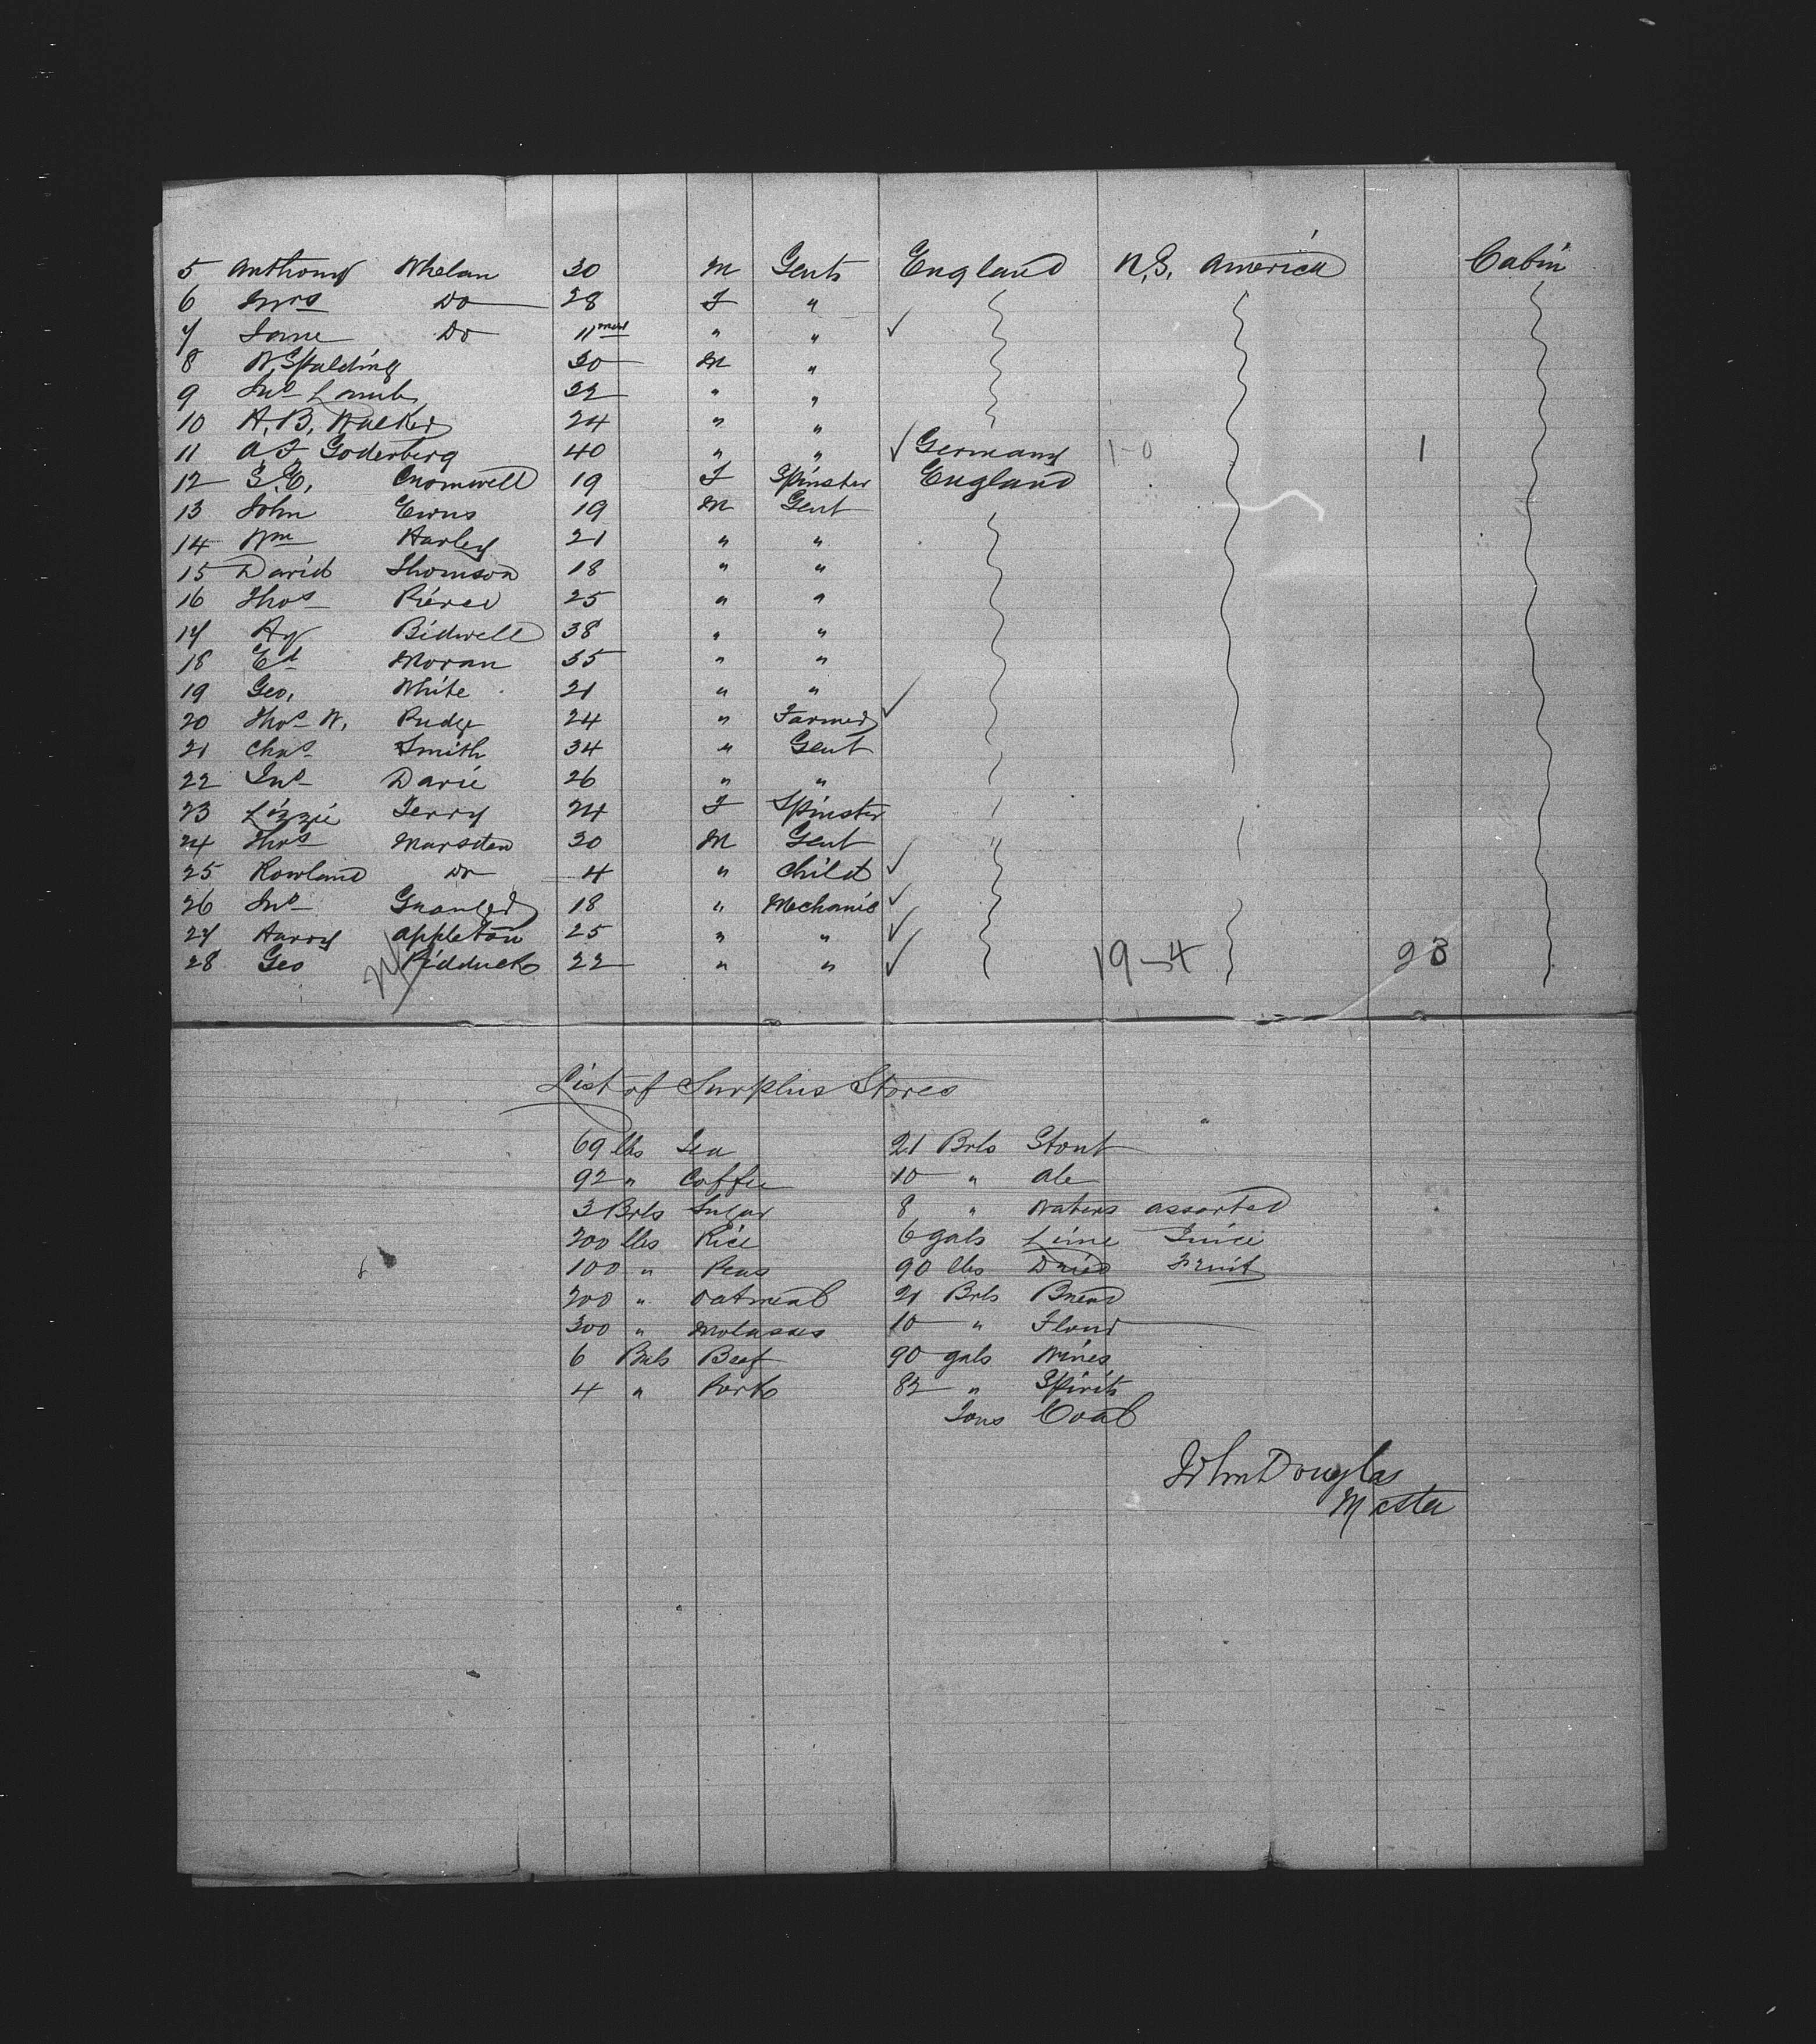 5 Anthony Whelan 30 M Gents England N.S. America Cabin
6 Mrs Do 28 F "
7 Jane Do 11 mos " " ✓
8 W. Spalding 30 M "
9 Jno Lamb 32 " "
10 A. B. Walker 24 " "
11 A F Goderberg 40 " " ✓ Germany 1-0 1
12 S. E. Cromwell 19 F Spinster England
13 John Ewns 19 M Gent
14 Wm Harley 21 " "
15 David Thomson 18 " "
16 Thos Pierce 25 " "
17 Hy Bidwell 38 " "
18 Ed Moran 35 " "
19 Geo. White 21 " "
20 Thos W. Pudge 24 " Farmer ✓
21 Chas Smith 34 " Gent
22 Jno Davie 26 " "
23 Lizzie Terry 24 F Spinster
24 Thos Marsden 30 M Gent "
25 Rowland Do 4 " Child ✓
26 Jno Granger 18 " Mechanic ✓
27 Harry Appleton 25 " " ✓
28 Geo Pidduck 22 " " ✓ 19-4 23
List of Surplus Stores
69 lbs Tea 21 Brls Stout
92 " Coffee 10 " Ale
3 Brls Sugar 8 " Waters assorted
200 lbs Rice 6 gals Lime Juice
100 " Peas 90 lbs Dried Fruit
200 " Oatmeal 21 Brls Bread
300 " Molasses 10 " Flour
6 Brls Beef 90 gals Wines
4 " Pork 82 " Spirits
Tons Coal
John Douglas
Master